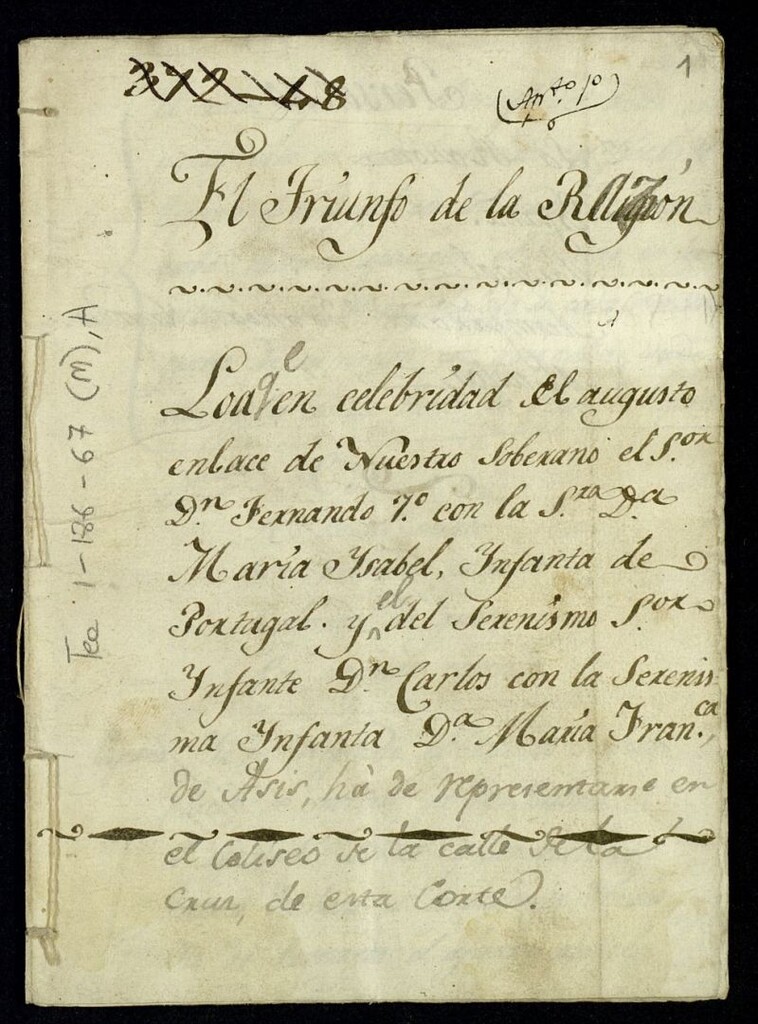 372-48
(Apto 1º)
1
El Triunfo de la Religión
A
Loa q.e en celebridad del augusto
enlace de Nuestro Soberano el S.or
D.n Fernando 7.º con la S.ra D.a
María Ysabel, Ynfanta de
Portugal. y el del Serenísmo S.or
Ynfante D.n Carlos con la Serenis-
ma Ynfanta D.a María Fran.ca,
de Asis, há de representarse en
el Coliseo de la calle de la
Cruz, de esta Corte.
Tea 1-186-67 (M), A